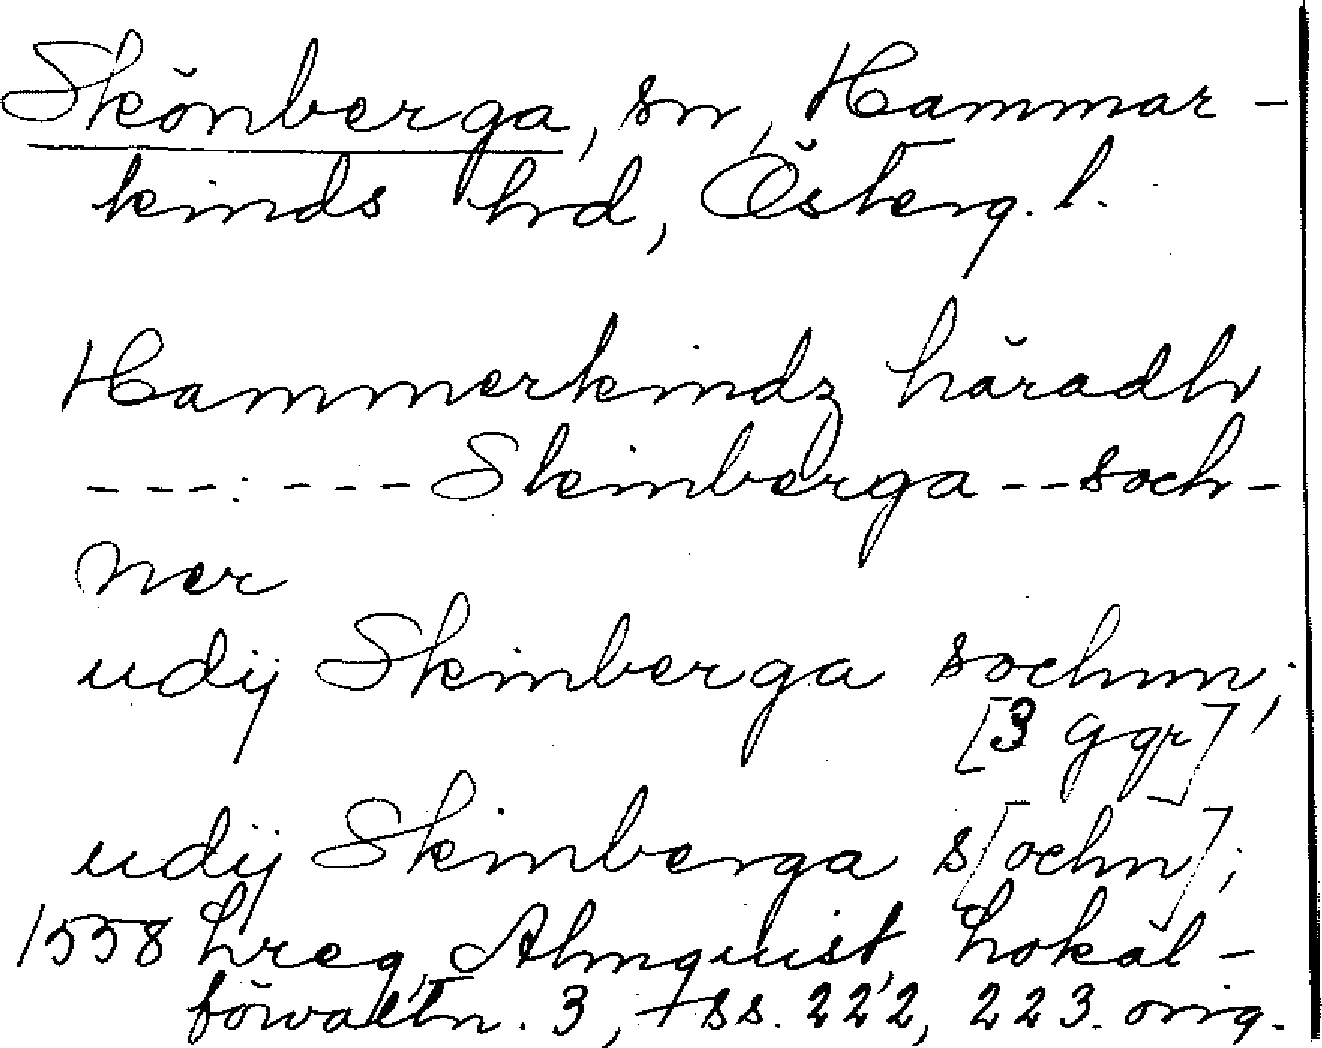 Skönberga, sn, Hammar-
kinds hrd, Österg. l.
Hammerkindz häradh
---:--- Skinberga -- soch-
ner
udij Skinberga sochnn;
[3 ggr]
udij Skinberga s[ochn];
1558 Lreg, Almquist, Lokal-
förvaltn. 3, + ss. 222, 223. orig.